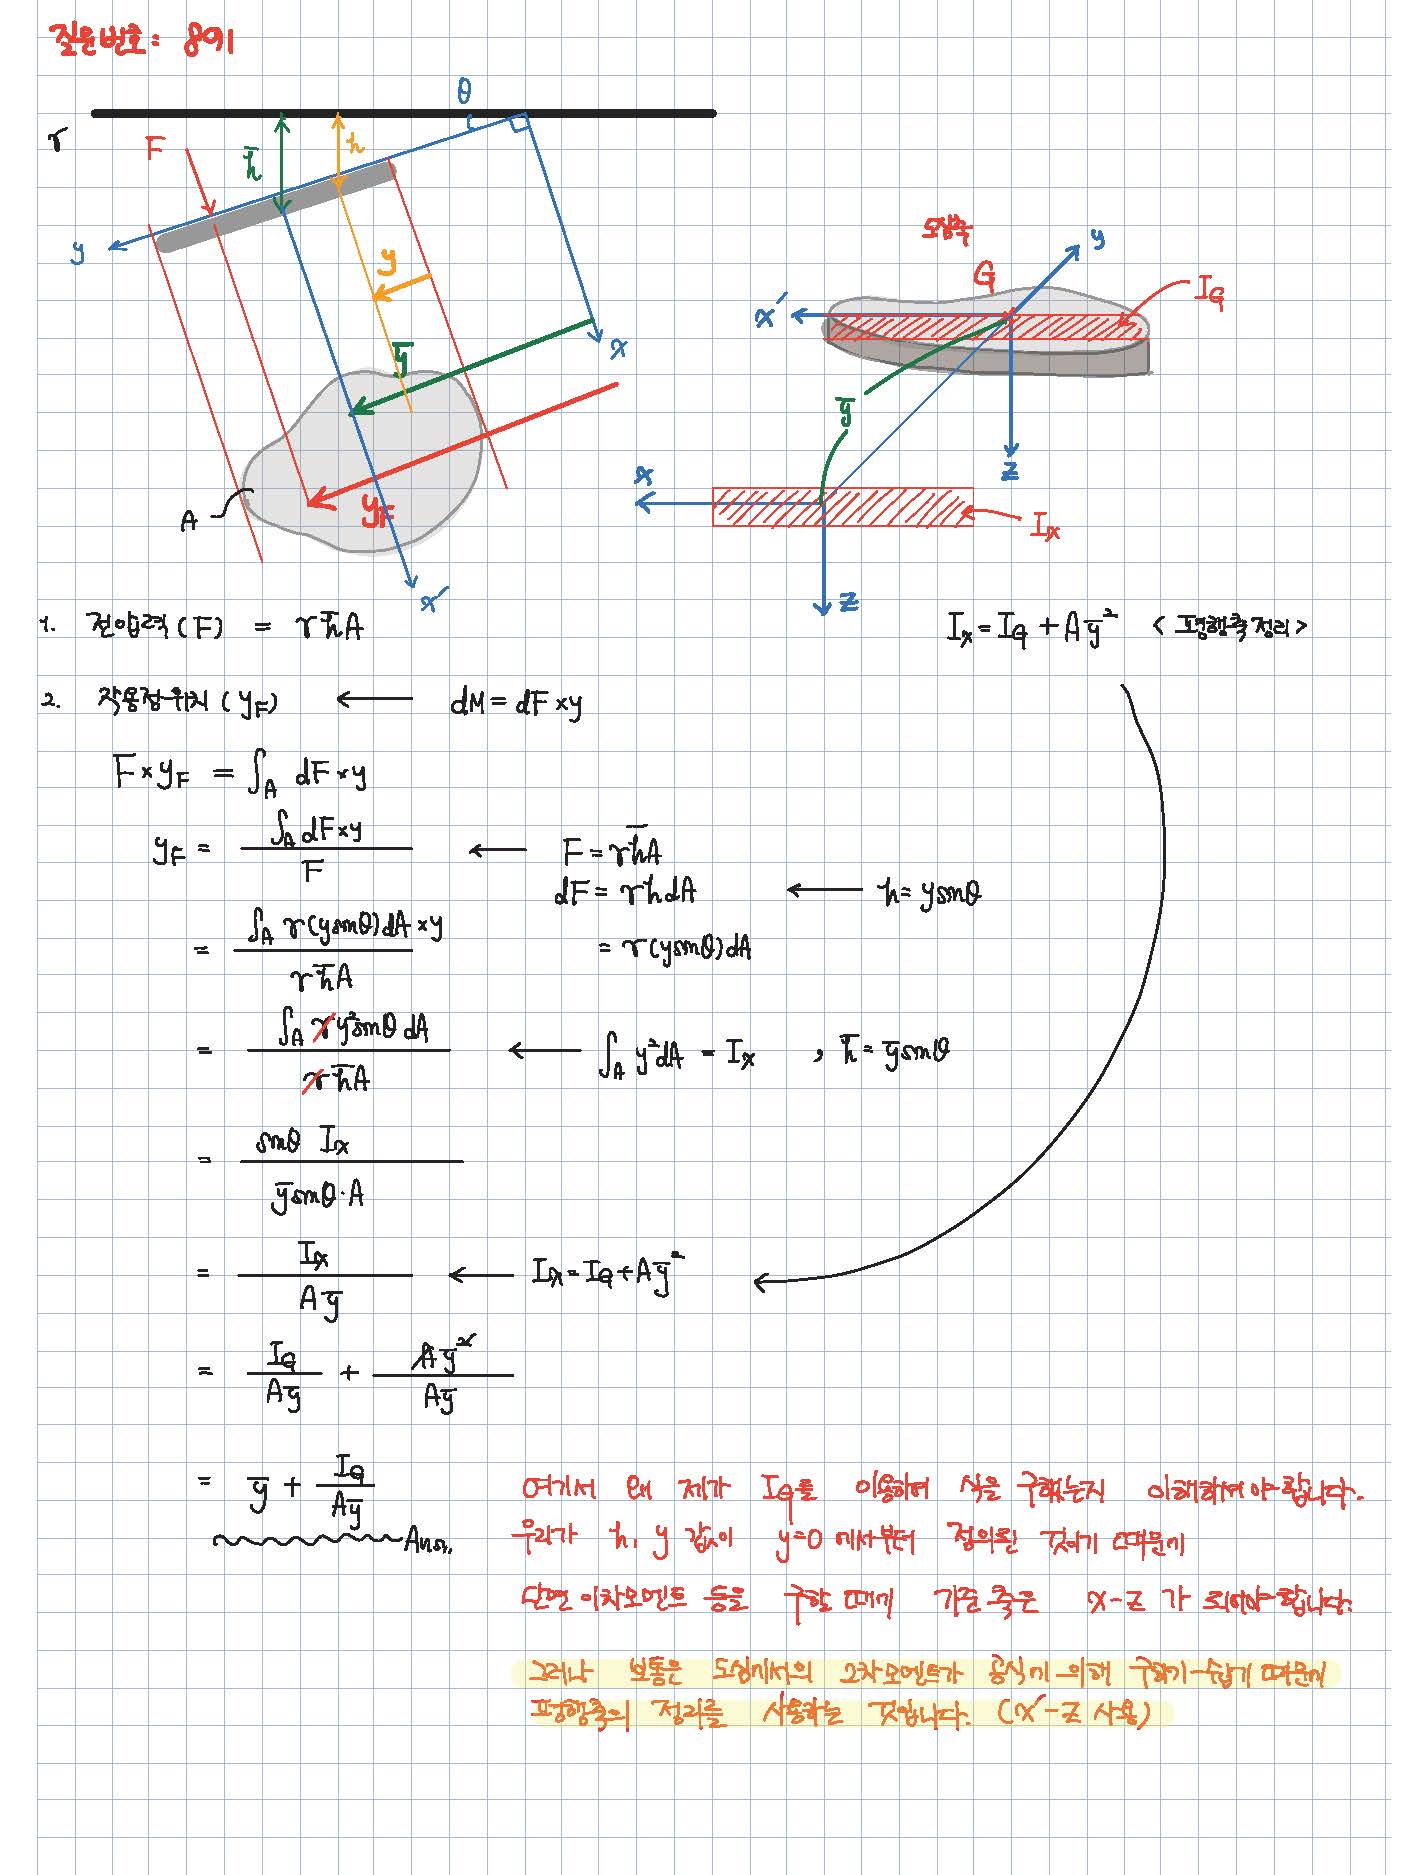 질문번호: 8예
θ
γ
F
h̄
h
y
y
ȳ
x
y_F
A
x′
도심축
G
y
I_G
x′
ȳ
z
x
I_x
z
1. 전압력(F) = γh̄A
I_x = I_G + Aȳ² <평행축정리>
2. 작용점위치(y_F) ← dM = dF×y
F×y_F = ∫_A dF×y
y_F = ∫_A dF×y / F ← F = γh̄A
dF = γhdA ← h = ysinθ
= ∫_A γ(ysinθ)dA×y / γh̄A
= γ(ysinθ)dA
= ∫_A γy²sinθdA / γh̄A ← ∫_A y²dA = I_x , h̄ = ȳsinθ
= sinθ I_x / ȳsinθ·A
= I_x / Aȳ ← I_x = I_G + Aȳ²
= I_G / Aȳ + Aȳ² / Aȳ
= ȳ + I_G / Aȳ
Ans.
여기서 왜 제가 I_G를 이용하여 식을 구했는지 이해하셔야 합니다.
우리가 h, y 값이 y=0 에서부터 정의된 것이기 때문에
단면이차모멘트 등을 구할 때에 기준축은 x-z 가 되어야 합니다.
그러나 보통은 도심에서의 2차모멘트가 공식에 의해 구하기 쉽기 때문에
평행축의 정리를 사용하는 것입니다. (x′-z 사용)